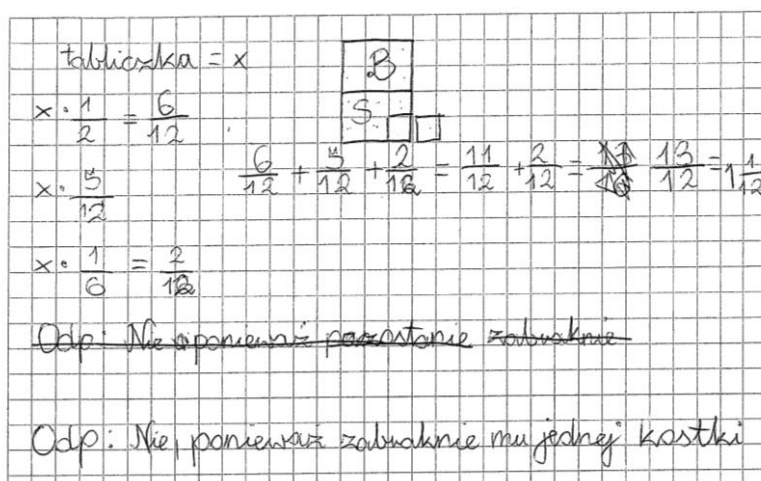 tabliczka = x
B
x · 1/2 = 6/12
S
6/12 + 5/12 + 2/12 = 11/12 + 2/12 = 13/12 = 1 1/12
x · 5/12
x · 1/6 = 2/12
Odp: Nie ponieważ pozostanie zabraknie
Odp: Nie, poniewarz zabraknie mu jednej kostki